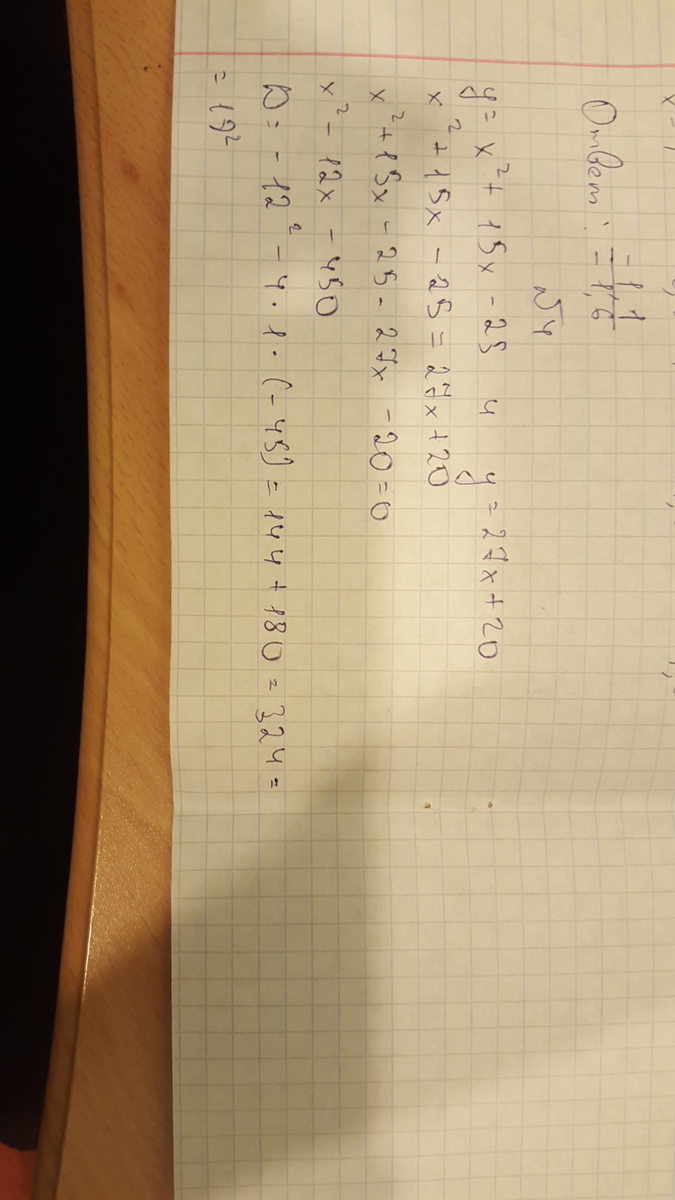 Ответ: -1,1
-1,6
№4
y = x² + 15x - 25 и y = 27x + 20
x² + 15x - 25 = 27x + 20
x² + 15x - 25 - 27x - 20 = 0
x² - 12x - 450
D = -12² - 4 · 1 · (-45) = 144 + 180 = 324 =